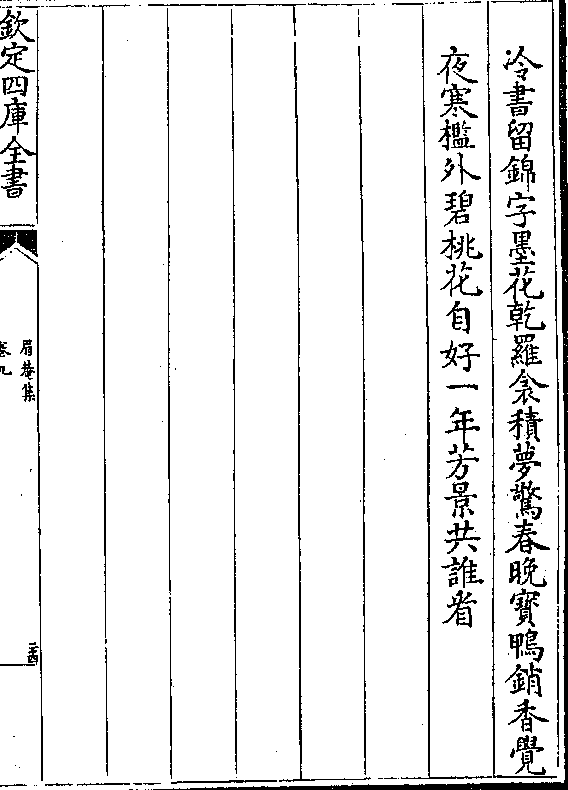 冷書留錦字墨花乾羅衾積夢驚春晚寳鴨銷香覺
夜寒檻外碧桃花自好一年芳景共誰看
欽定四庫全書
眉菴集
卷九
二十四